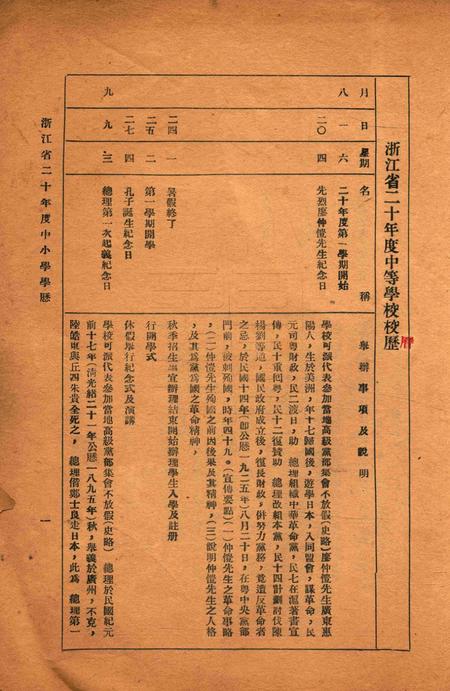 浙江省二十年度中等學校校歷
曆
月
日
星期
名 稱
舉辦事項及說明
八
一
六
二十年度第一學期開始
二〇
四
先烈廖仲愷先生紀念日
學校可派代表參加當地高級黨部集會不放假(史略)廖仲愷先生廣東惠
陽人,生於美洲,年十七歸國後,遊學日本,入同盟會,謀革命,民
元司粵財政,民二渡日,助 總理組織中華革命黨,民七在滬著書宣
傳,民十重囘粵,民十二復贊助 總理改組本黨,民十四計劃討伐陳
楊劉等逆,國民政府成立後,復長財政,併努力黨務,竟遭反革命者
之忌,於民國十四年(即公歷一九二五年)八月二十日,在粵中央黨部
門前,被刺殉國,時年四十九。(宣傳要點)(一)仲愷先生之革命事略
,(二)仲愷先生殉國之前因後果及其精神,(三)說明仲愷先生之人格
,及其爲黨爲國之革命精神,
二四
一
暑假終了
秋季招生事宜辦理結束開始辦理學生入學及註册
二五
二
第一學期開學
行開學式
二七
四
孔子誕生紀念日
休假舉行紀念式及演講
九
九
三
總理第一次起義紀念日
學校可派代表參加當地高級黨部集會不放假(史略) 總理於民國紀元
前十七年(清光緒二十一年公歷一八九五年)秋,舉義於廣州,不克,
陸皓東與丘四朱貴全死之, 總理偕鄭士良走日本,此爲 總理第一
浙江省二十年度中小學學歷
一